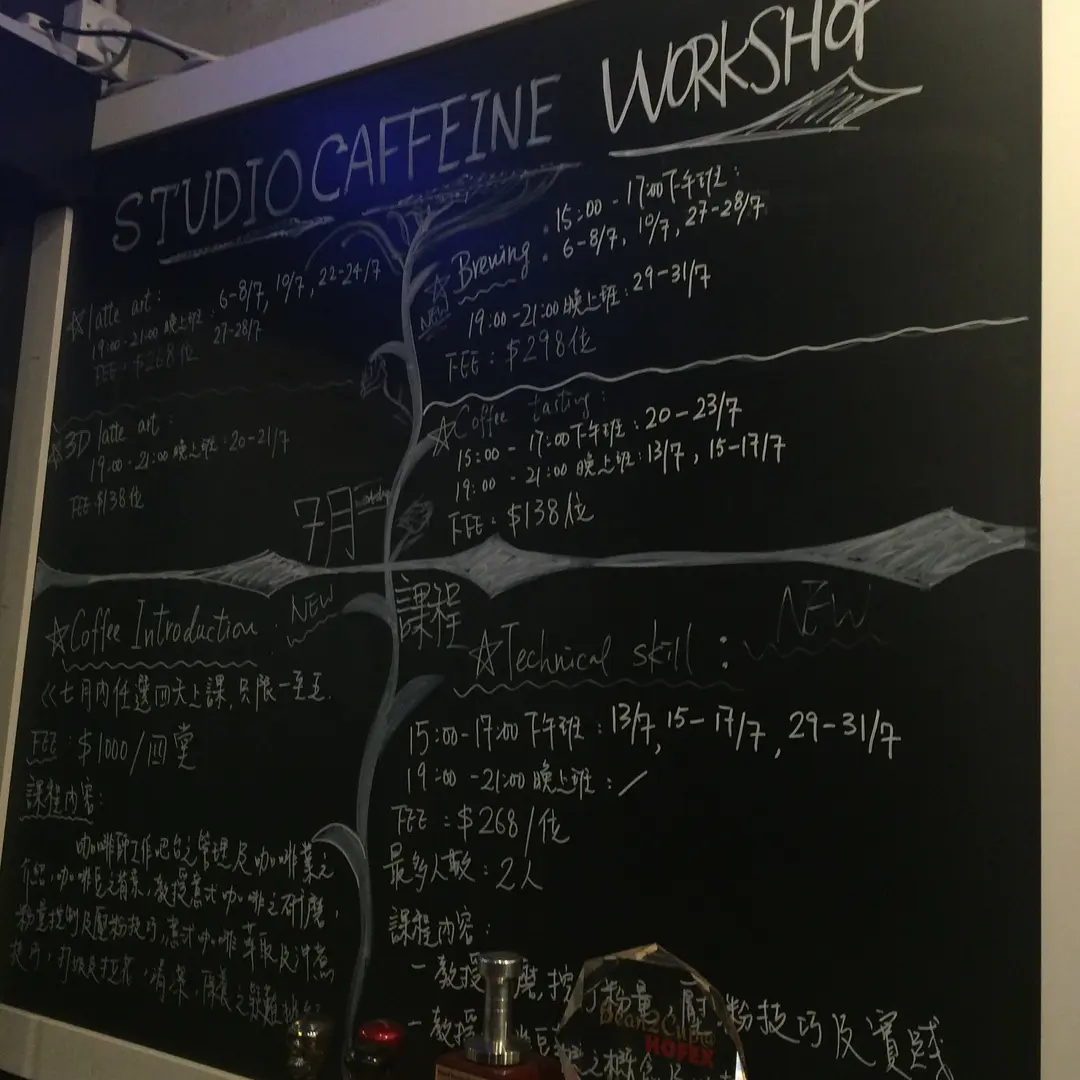 STUDIO CAFFEINE WORKSHOP
☆latte art:
19:00-21:00 晚上班: 6-8/7, 10/7, 22-24/7
27-28/7
FEE: $268位
☆3D latte art:
19:00-21:00 晚上班: 20-21/7
FEE: $138位
☆Brewing: 15:00-17:00下午班:
NEW
6-8/7, 10/7, 27-28/7
19:00-21:00 晚上班: 29-31/7
FEE: $298位
☆Coffee tasting:
15:00-17:00下午班: 20-23/7
19:00-21:00 晚上班: 13/7, 15-17/7
FEE: $138位
7月
課程
☆Coffee Introduction:
NEW
<<七月內任選四天上課,只限一至五.
FEE: $1000/四堂
課程內容:
咖啡師工作吧台之管理及咖啡業之
介紹,咖啡豆之背景,教授意式咖啡之研磨,
粉量控制及壓粉技巧,意式咖啡萃取及沖煮
技巧,
☆Technical skill:
NEW
15:00-17:00 下午班: 13/7, 15-17/7, 29-31/7
19:00-21:00 晚上班: /
FEE: $268/位
最多人數: 2人
課程內容:
一教授 磨,控 粉量,壓粉技巧及實踐
一教授 之概念及
HOFEX